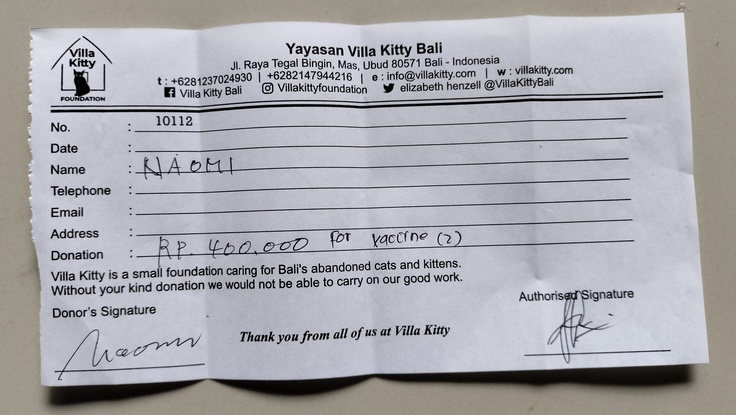 Villa
Kitty
FOUNDATION
Yayasan Villa Kitty Bali
Jl. Raya Tegal Bingin, Mas, Ubud 80571 Bali - Indonesia
t : +6281237024930 | +6282147944216 | e : info@villakitty.com | w : villakitty.com
Villa Kitty Bali Villakittyfoundation elizabeth henzell @VillaKittyBali
No. : 10112
Date :
Name : NAOMI
Telephone :
Email :
Address :
Donation : RP. 400.000 for vaccine (2)
Villa Kitty is a small foundation caring for Bali's abandoned cats and kittens.
Without your kind donation we would not be able to carry on our good work.
Donor's Signature Authorised Signature
Naomi Thank you from all of us at Villa Kitty